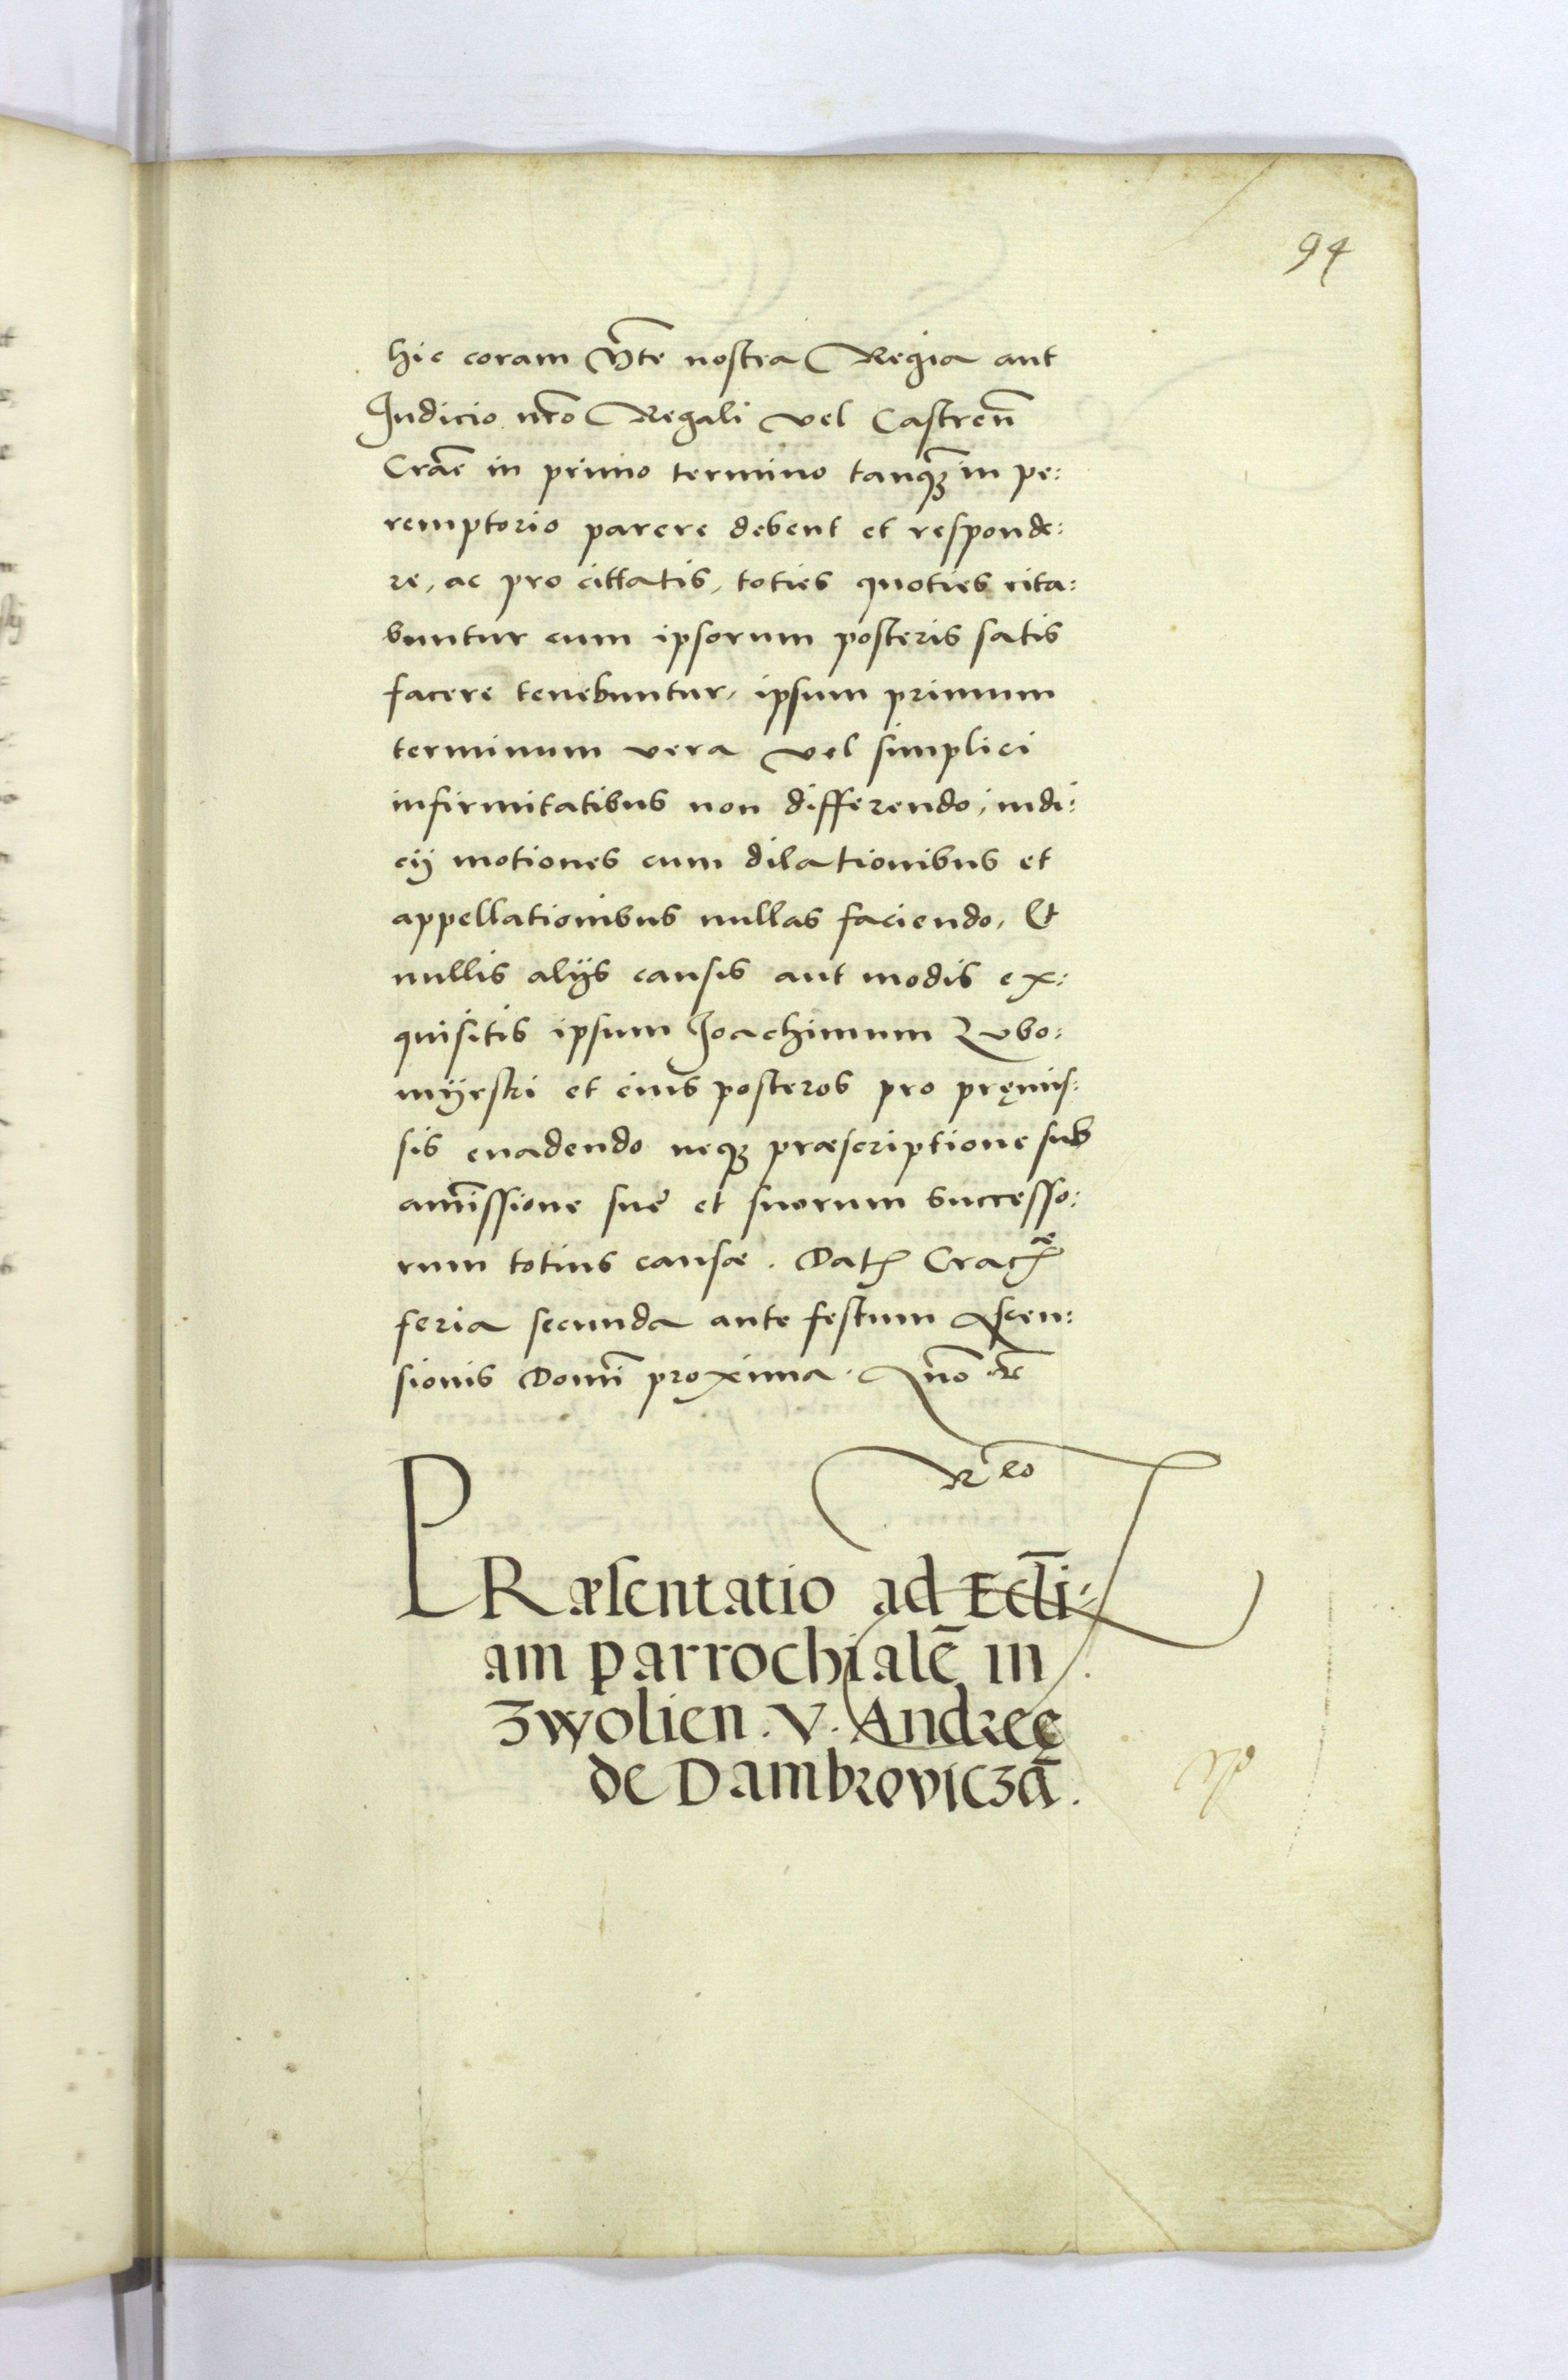 94
hic coram M̃te nostra Regia aut
Judicio nr̃o Regali vel Castren̄
Crac̃ in primo termino tanqꝫ in pe:
remptorio parere debent et responde:
re, ac pro cittatis, toties quoties cita:
buntur cum ipsorum posteris satis
facere tenebuntur, ipsum primum
terminum vera vel simplici
infirmitatibus non differendo, iudi:
cij motiones cum dilationibus et
appellationibus nullas faciendo, Et
nullis alijs causis aut modis ex:
quisitis ipsum Joachimum Lubo:
myrski et eius posteros pro pręmis:
sis euadendo neqꝫ præscriptione sub
amĩssione sue et suorum successo:
rum totius causæ. Datꝫ Crac
feria secunda ante festum Ascen:
sionis Domĩ proxima. Anno
PRæsentatio ad Ecctĩ:
am parrochialẽ in
Zwolien. V. Andreę
de Dambroviczã.